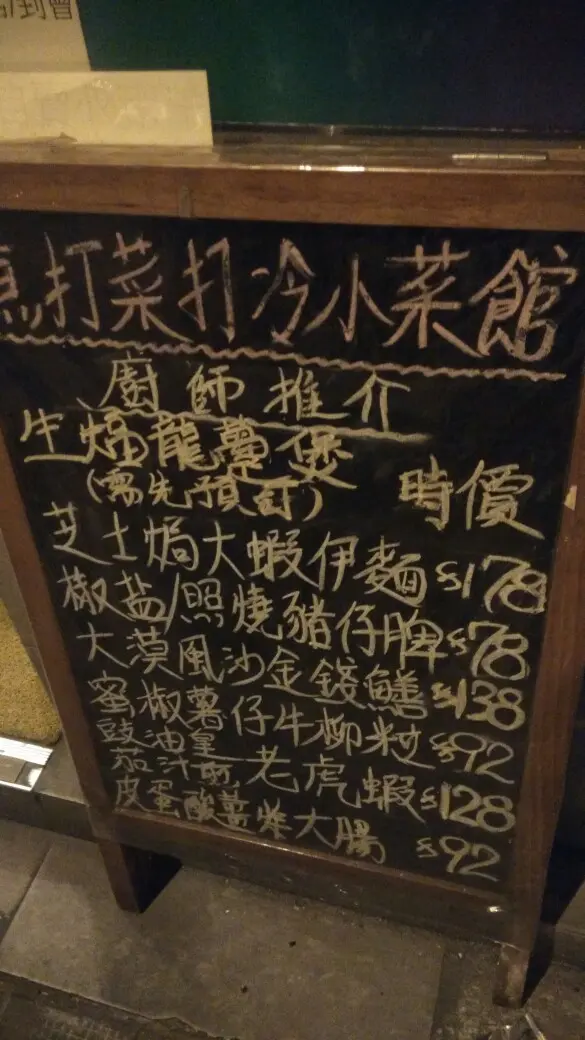 到會
打菜打冷小菜館
廚師推介
生焗龍躉煲
(需先預訂) 時價
芝士焗大蝦伊麵 $178
椒盐/照燒豬仔脾 $78
大漠風沙金錢鱔 $138
蜜椒薯仔牛柳粒 $92
豉油皇老虎蝦 $128
茄汁煎
皮蛋酸薑炸大腸 $92